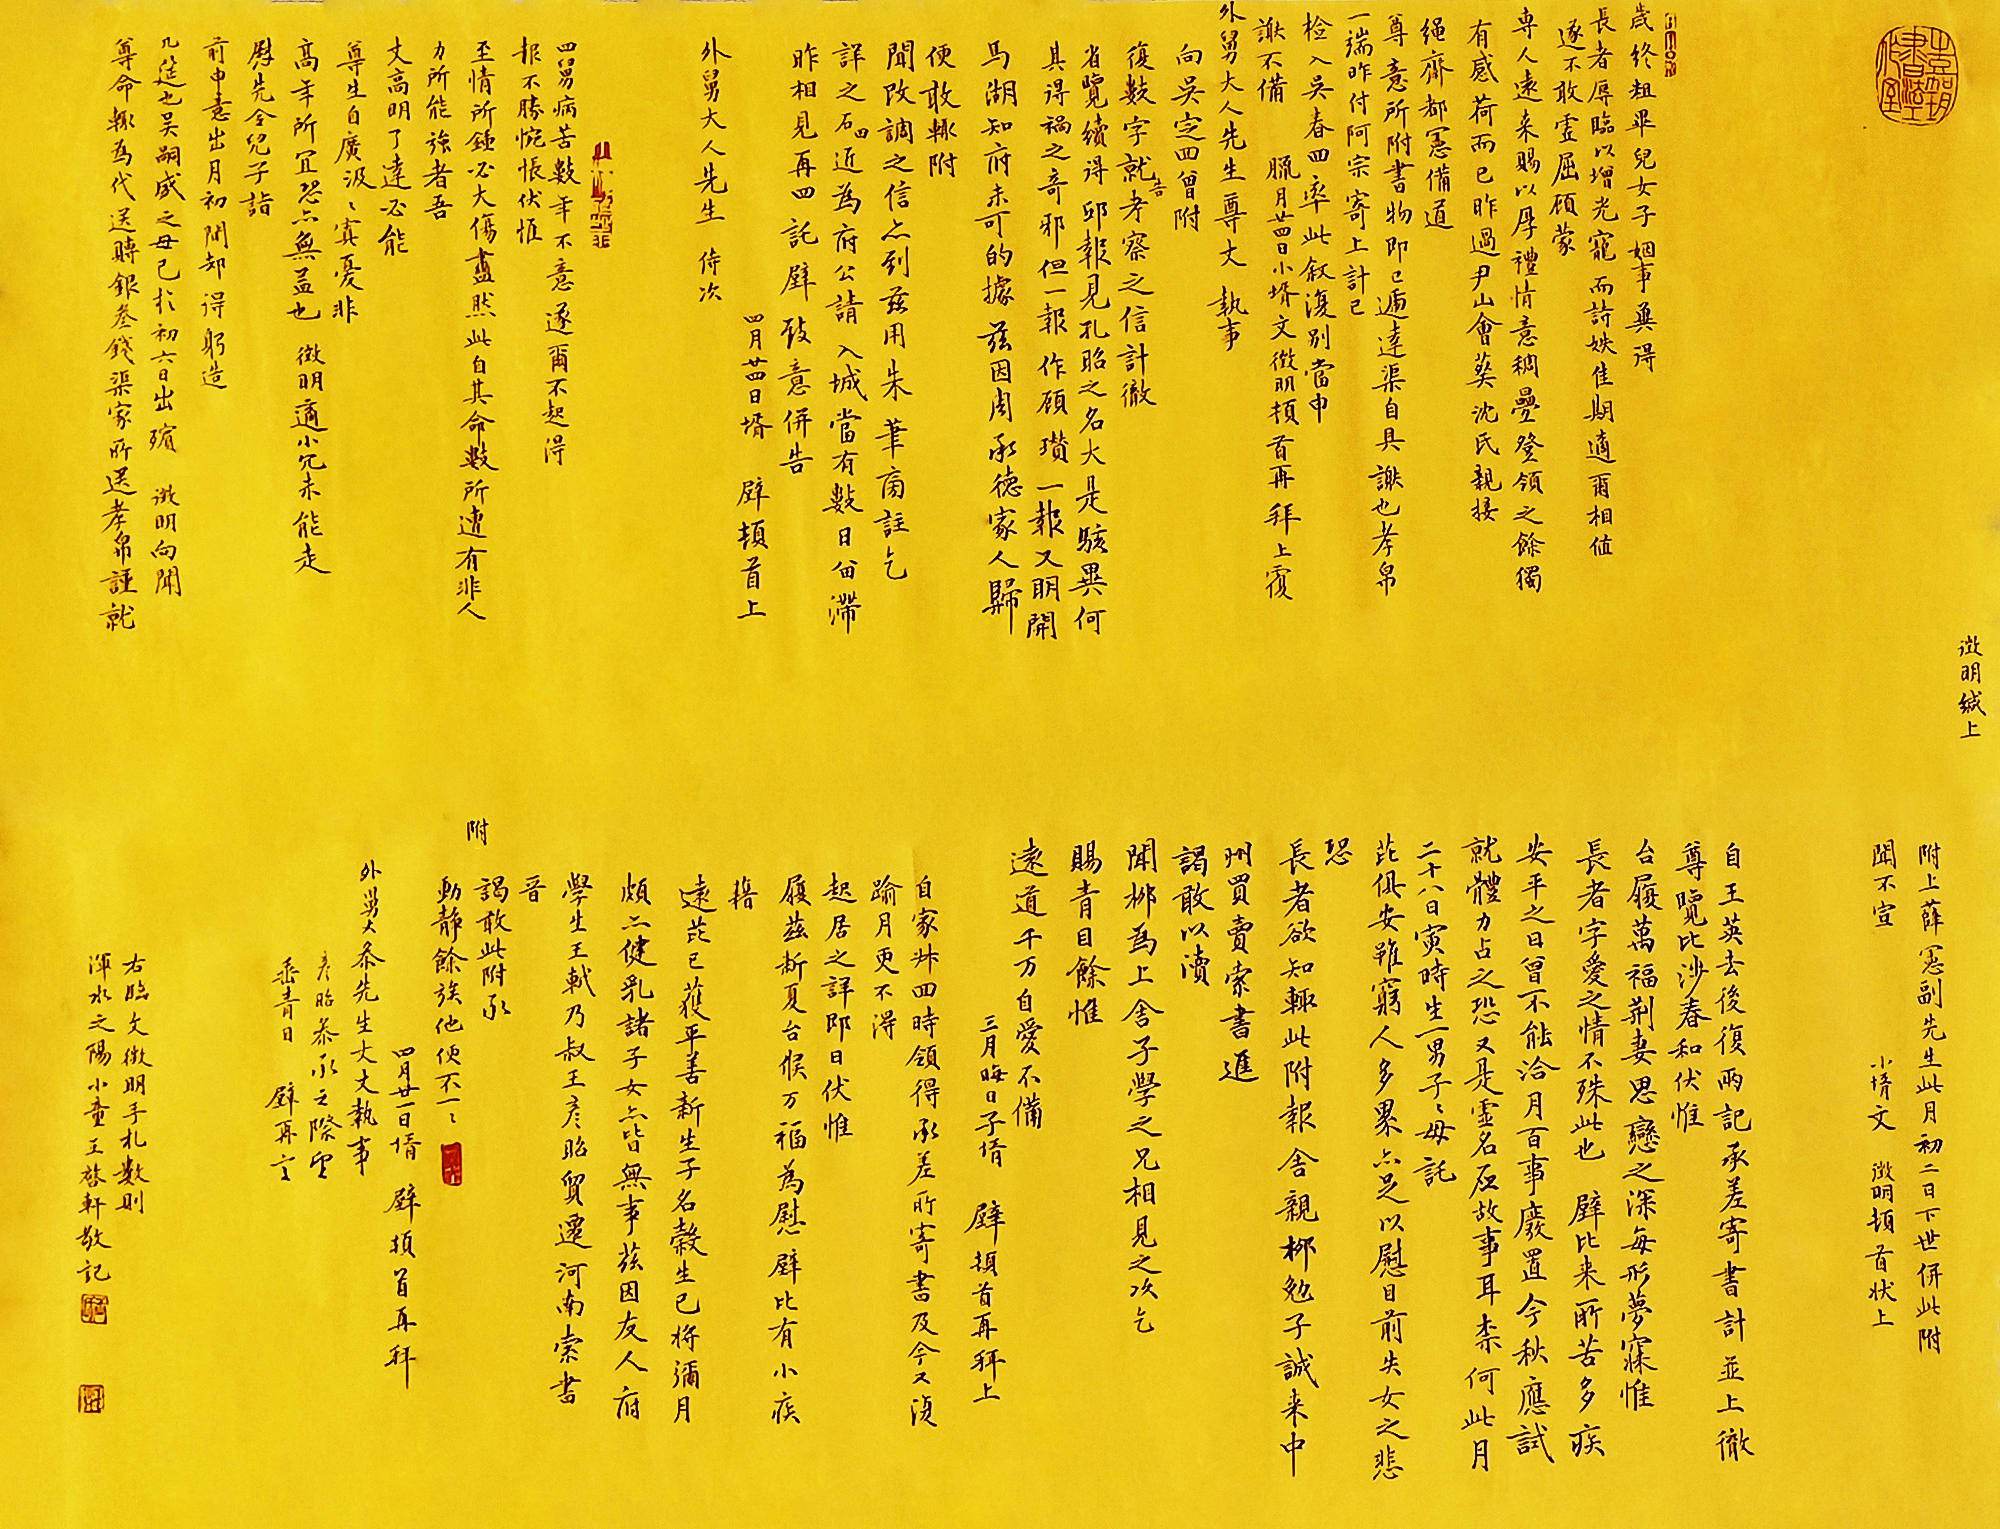 歲終粗畢兒女子姻事冀得
長者辱臨以增光寵而詩妷佳期適爾相值
遂不敢䨓屈顧蒙
專人遠来賜以厚禮情意稠疊登領之餘獨
有感荷而已昨過尹山會葬沈氏親接
繩齋都憲備道
尊意所附書物即已遞達渠自具謝也孝帛
一端昨付阿宗寄上計已
檢入吳春回率此敘復別當申
謝不備 臘月廿四日小壻文徵明頓首再拜上覆
外舅大人先生尊丈 執事
向吳定四曾附
復數字就告孝察之信計徹
省覽續得邱報見孔昭之名大是駭異何
其得禍之奇邪但一報作顧瓚一報又明開
馬湖知府未可的據 茲因周承德家人歸
便敢輒附
聞改調之信亦列茲用朱筆商註乞
詳之石田近為府公請入城當有數日留滯
昨相見再四託 壁 致意併告
四月廿四日壻 壁 頓首上
外舅大人先生 侍次
四舅病苦數年不意遂爾不起得
报不勝惋悵伏惟
至情所鍾必大傷盡然此自其命數所遭有非人
力所能強者吾
丈高明了達必能
尊生自廣汲〻寘憂非
高年所宜恐亦無益也 徵明適小冗未能走
慰先令兒子詣
前申意出月初間却得躬造
几筵也吳嗣威之母已於初六日出殯 徵明向聞
尊命輒為代送賻銀叁錢渠家所送孝帛謹就
徵明緘上
附上薛憲副先生此月初二日下世併此附
聞不宣 小壻文 徵明頓首状上
自王英去後復兩記承差寄書計並上徹
尊覽比沙春和伏惟
台履萬福荊妻思戀之深每形夢寐惟
長者字愛之情不殊此也 壁比来所苦多疾
安平之日曾不能洽月百事廢置今秋應試
就體力占之恐又是靈名應故事耳柰何此月
二十八日寅時生一男子〻母託
芘俱安雖窮人多累亦足以慰目前失女之悲
恐
長者欲知輒此附報舍親桞勉子誠来中
州買賣索書進
謁敢以瀆
聞桞為上舍子學之兄相見之次乞
賜青目餘惟
遠道千万自愛不備
三月晦日子壻 壁頓首再拜上
自家姊四時領得承差所寄書及今又後
踰月更不得
起居之詳即日伏惟
履茲新夏台候万福為慰壁比有小疾
藉
遠芘已獲平善新生子名穀生已将彌月
頗亦健乳諸子女亦皆無事茲因友人府
學生王軾乃叔王彥昭貿遷河南索書
晉
謁敢此附承
動静餘族他便不一〻
四月廿一日壻 壁 頓首再拜
外舅大叅先生丈丈執事
附
彥昭叅承之際望
垂青目 壁再言
右臨文徵明手札數則
渾水之陽小童王啓軒敬記